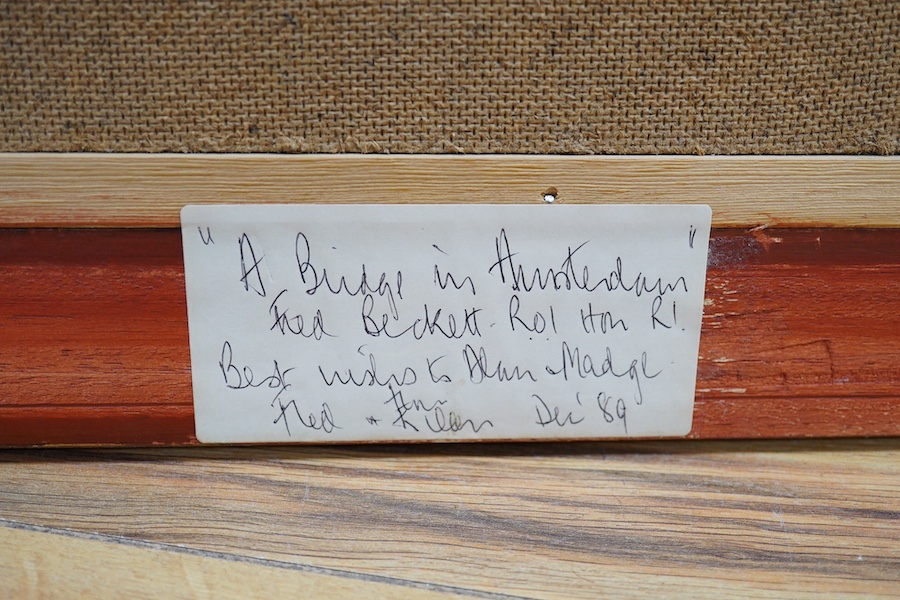 " A Bridge in Amsterdam "
Fred Beckett. R.O.I Hon R.I.
Best wishes to Alan & Madge.
Fred & Dec '89